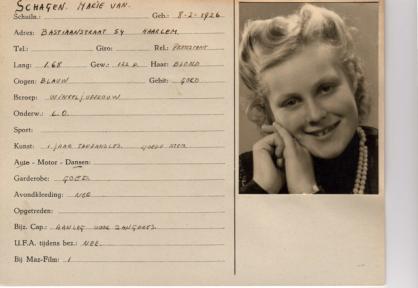 SCHAGEN. MARIE VAN.
Schuiln.: Geb.: 8-2-1926
Adres: BASTIAANSTRAAT 54 HAARLEM.
Tel.: Giro: Rel.: PROTESTANT
Lang: 1.68 Gew.: 122 p. Haar: BLOND
Oogen: BLAUW Gebit: GOED
Beroep: WINKELJUFFROUW
Onderw.: L.O.
Sport:
Kunst: 1 JAAR GOEDE STEM
Auto - Motor - Dansen:
Garderobe: GOED
Avondkleeding: NEE
Opgetreden:
Bijz. Cap.: AANLEG VOOR ZANGERES.
U.F.A. tijdens bez.: NEE.
Bij Maz-Film: 1